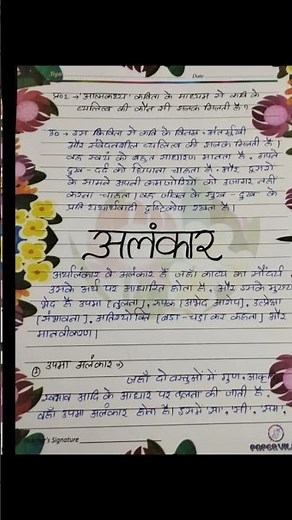 Date
प्र०2 → 'आत्मकथ्य' कविता के माध्यम से कवि के
व्यक्तित्व की कौन सी झलक मिलती है ?
उ० → इस कविता से कवि के विनम्र, अंतर्मुखी
और संवेदनशील व्यक्तित्व की झलक मिलती है।
वह स्वयं को बहुत साधारण मानता है, अपने
दुख-दर्द को छिपाना चाहता है, और दूसरों
के सामने अपनी कमजोरियों को उजागर नहीं
करना चाहता। वह जीवन के सुख-दुख के
प्रति यथार्थवादी दृष्टिकोण रखता है।
अलंकार
अर्थालंकार वे अलंकार हैं जहाँ काव्य का सौंदर्य
उसके अर्थ पर आधारित होता है, और इसके मुख्य
भेद हैं उपमा (तुलना), रूपक (अभेद आरोप), उत्प्रेक्षा
(संभावना), अतिशयोक्ति (बढ़ा-चढ़ा कर कहना) और
मानवीकरण।
① उपमा अलंकार →
जहाँ दो वस्तुओं में गुण, आकृ
स्वभाव आदि के आधार पर तुलना की जाती है,
वहाँ उपमा अलंकार होता है। इसमें 'सा', 'सी', 'सम',
Teacher's Signature